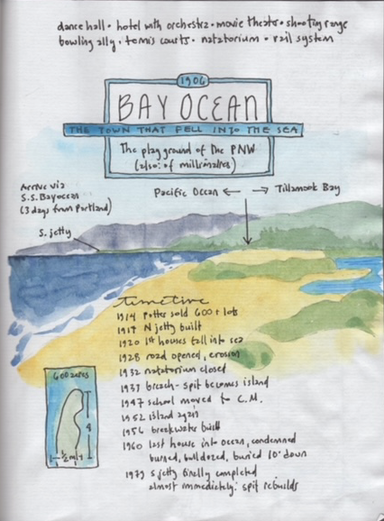 dance hall • hotel with orchestra • movie theater • shooting range
bowling ally • tennis courts • natatorium • rail system
1906
BAY OCEAN
THE TOWN THAT FELL INTO THE SEA
The playground of the PNW
(also: of millionaires)
Arrive via
S.S. Bayocean
(3 days from Portland)
Pacific Ocean ← → Tillamook Bay
S. jetty
timeline
1914 Potter sold 600+ lots
1917 N jetty built
1920 1st houses fall into sea
1928 road opened, erosion
1932 natatorium closed
1939 breach - spit becomes island
1947 school moved to C.M.
1952 island again
1956 breakwater built
1960 last house into ocean, condemned
burned, bulldozed, buried 10' down
1979 S jetty finally completed
almost immediately: spit rebuilds
600 acres
4